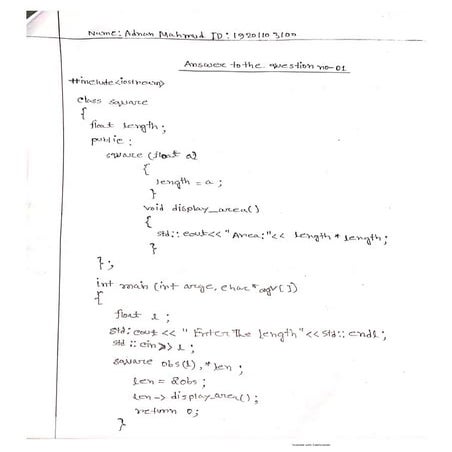 Name: Adnan Mahmud ID: 1920110 3100
Answer to the question no-01
#include<iostream>
class square
{
float length;
public:
square (float a)
{
length = a;
}
void display_area()
{
std::cout<<"Area:"<< length * length;
}
};
int main (int argc, char *agv[])
{
float l;
std::cout << "Enter The length"<<std::endl;
std::cin>> l;
square obs(l), *len;
len = &obs;
len -> display_area();
return 0;
}